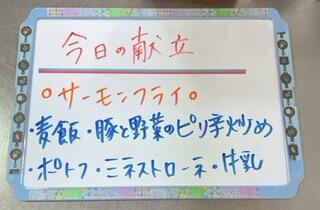 今日の献立
○サーモンフライ○
・麦飯・豚と野菜のピリ辛炒め
・ポトフ・ミネストローネ・牛乳